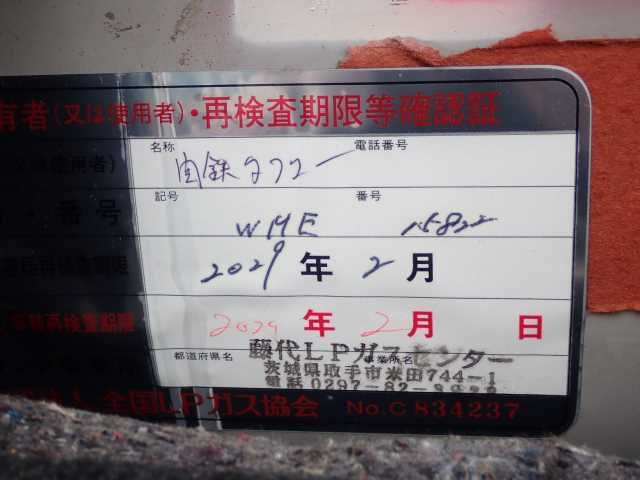 有者(又は使用者)・再検査期限等確認証
名称 電話番号
関鉄タクシー
記号 番号
・番号 WHE 15822
2029年2月
2029年2月 日
都道府県名 事業所名
藤代LPガスセンター
茨城県取手市米田744-1
電話0297-82-
全国LPガス協会 No.C834237